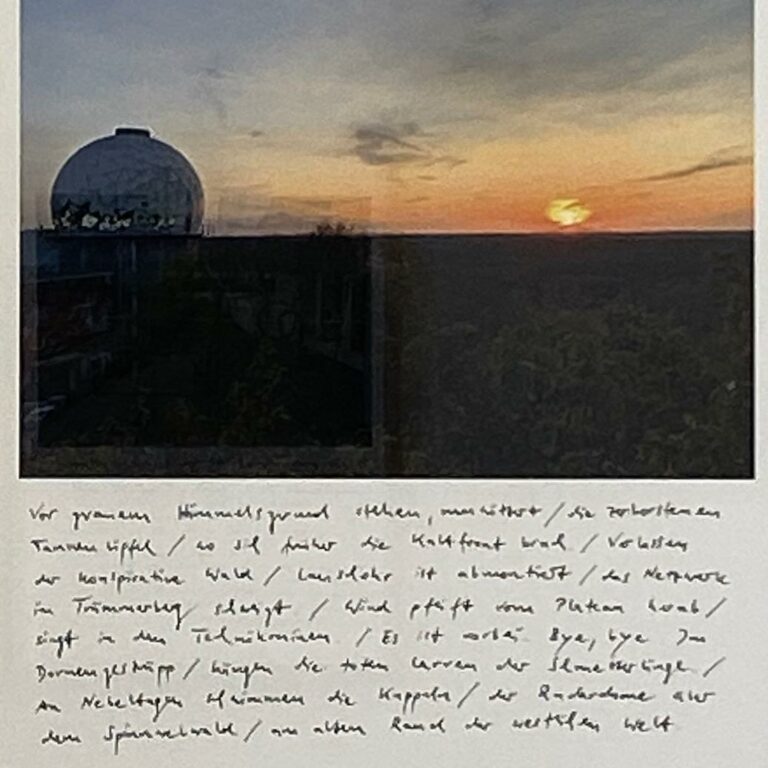 Vor grauem Himmelsgrund stehen, / die zerborstenen
Tannenwipfel / wo sich früher die Kaltfront brach / Verlassen
der konspirative Wald / Lauschohr ist abmontiert / das Netzwerk
im Trümmerberg schweigt / Wind pfeift vom Plateau herab /
singt in den Technikruinen / Es ist vorbei Bye, bye Im
Dornengestrüpp / hängen die toten Larven der Schmetterlinge /
An Nebeltagen schwimmen die Kuppeln / der Radardome über
dem Spinnwebwald / am alten Rand der westlichen Welt